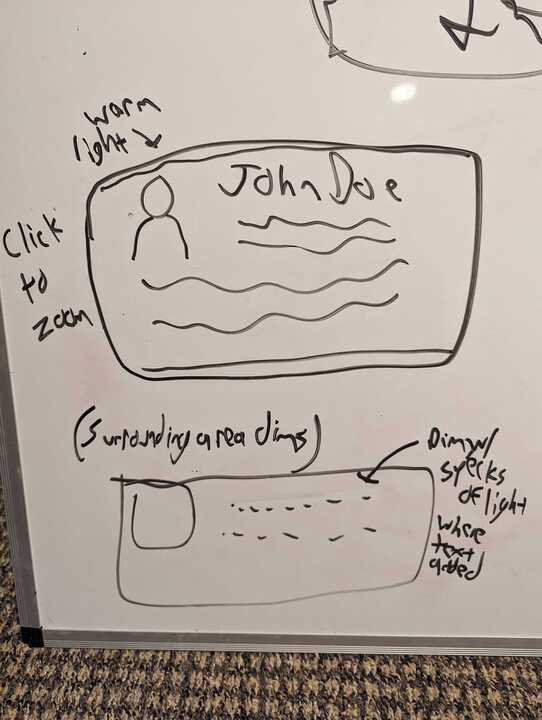 warm
light
John Doe
Click
to
zoom
(Surrounding area dims)
Dim w/
specks
of light
where
text
added